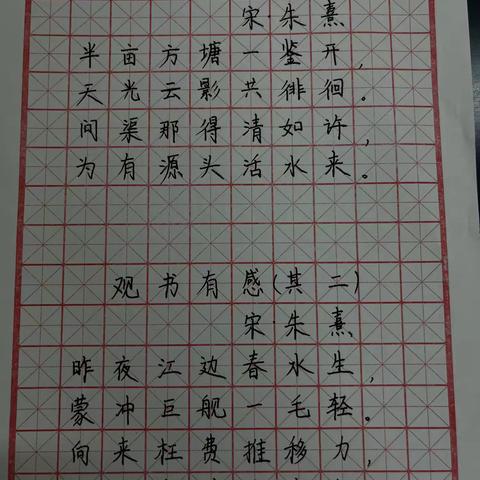 宋·朱熹
半亩方塘一鉴开，
天光云影共徘徊。
问渠那得清如许，
为有源头活水来。
观书有感(其二)
宋·朱熹
昨夜江边春水生，
蒙冲巨舰一毛轻。
向来枉费推移力，